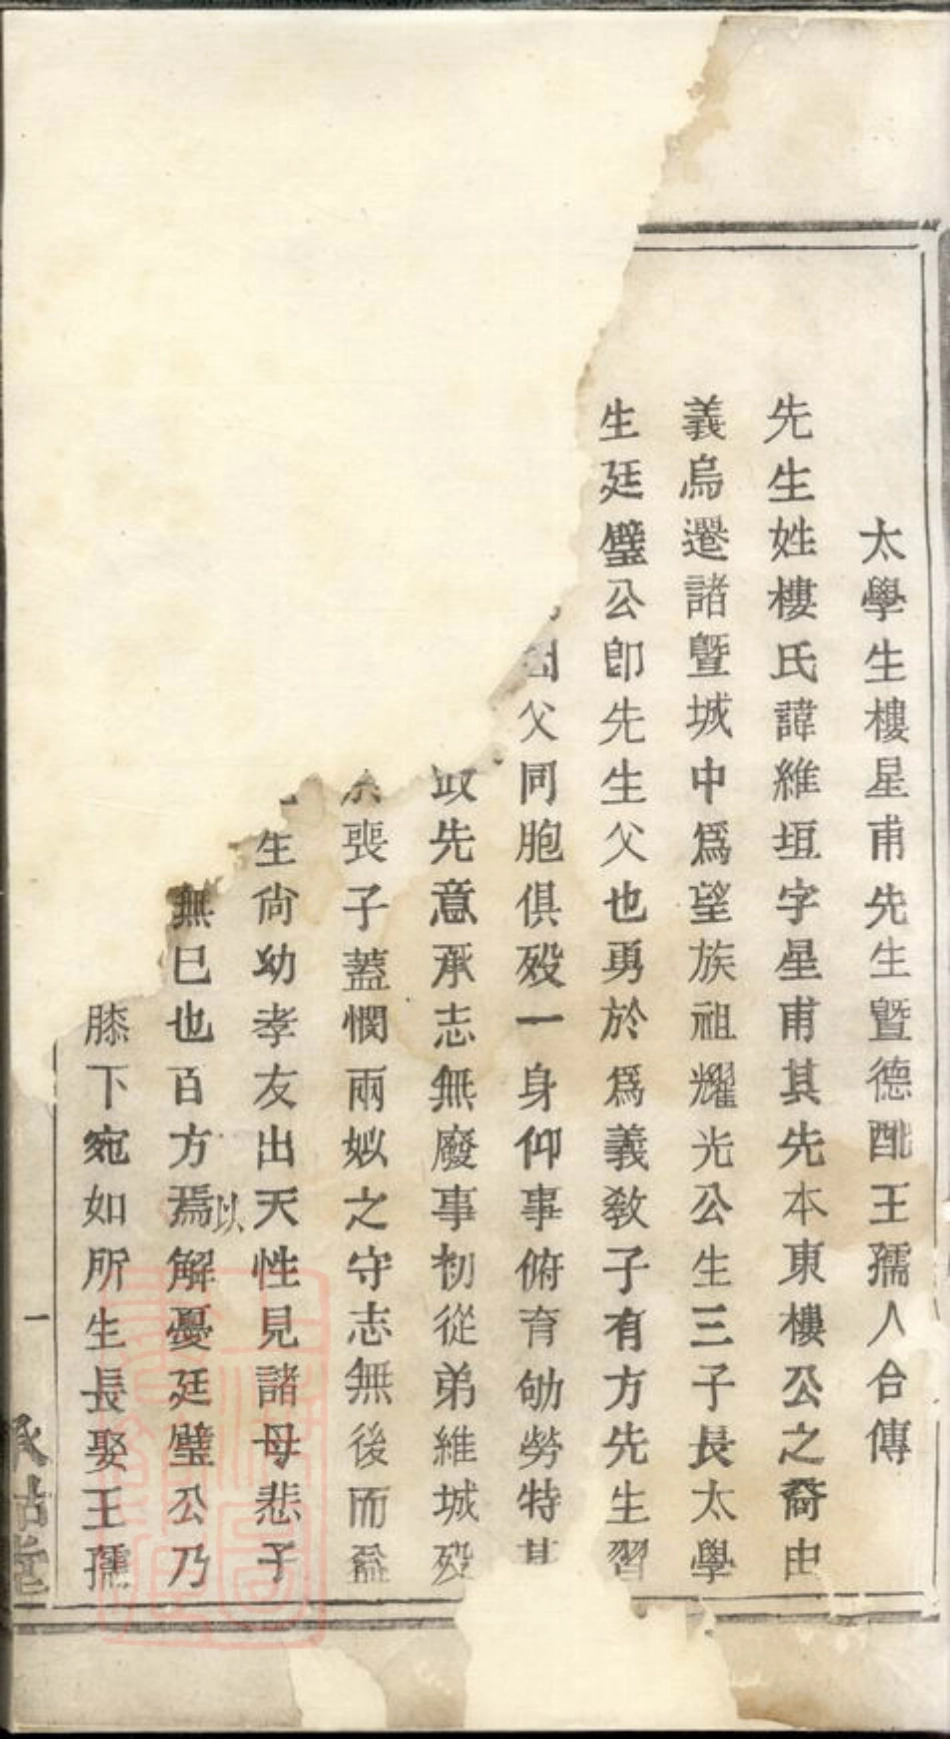 太學生樓星甫先生暨德配王孺人合傳
先生姓樓氏諱維垣字星甫其先本東樓公之裔由
義烏遷諸暨城中爲望族祖耀光公生三子長太學
生廷璧公卽先生父也勇於爲義敎子有方先生習
父同胞俱歿一身仰事俯育劬勞特甚
先意承志無廢事初從弟維城歿
喪子蓋憫兩姒之守志無後而益
生尙幼孝友出天性見諸母悲子
無已也百方焉以解憂廷璧公乃
膝下宛如所生長娶王孺
一
承祜堂